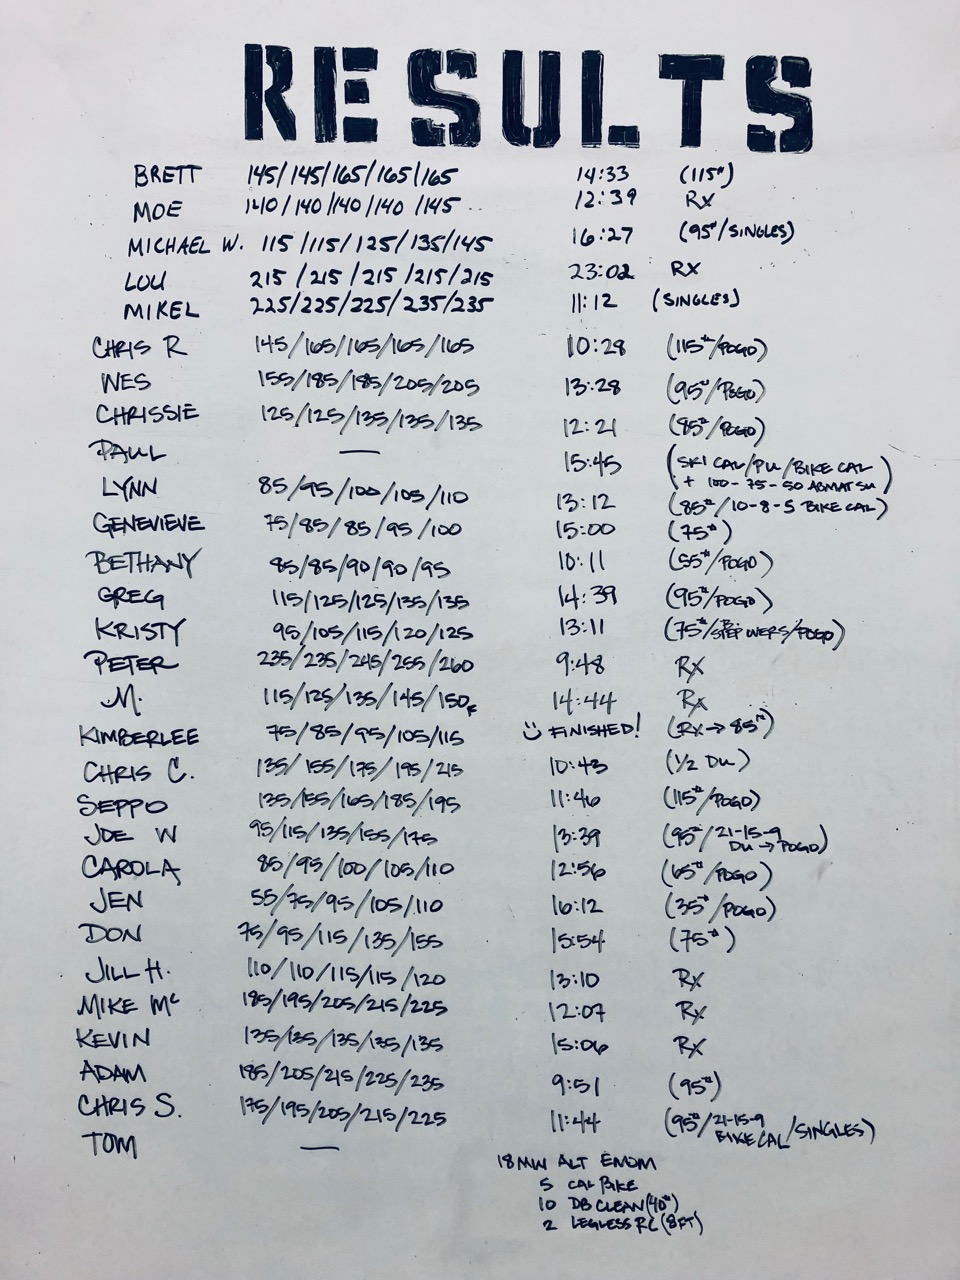 RESULTS
BRETT 145/145/165/165/165 14:33 (115#)
MOE 140/140/140/140/145 12:39 RX
MICHAEL W. 115/115/125/135/145 16:27 (95#/SINGLES)
LOU 215/215/215/215/215 23:02 RX
MIKEL 225/225/225/235/235 11:12 (SINGLES)
CHRIS R 145/165/165/165/165 10:28 (115#/POGO)
WES 155/185/185/205/205 13:28 (95#/POGO)
CHRISSIE 125/125/135/135/135 12:21 (85#/POGO)
PAUL — 15:45 (SKI CAL/PU/BIKE CAL
+ 100-75-50 ABMAT SU)
LYNN 85/95/100/105/110 13:12 (85#/10-8-5 BIKE CAL)
GENEVIEVE 75/85/85/95/100 15:00 (75#)
BETHANY 85/85/90/90/95 10:11 (55#/POGO)
GREG 115/125/125/135/135 14:39 (95#/POGO)
KRISTY 95/105/115/120/125 13:11 (75#/STEP OVERS/POGO)
PETER 235/235/245/255/260 9:48 RX
M. 115/125/135/145/150F 14:44 RX
KIMBERLEE 75/85/95/105/115 FINISHED! (RX→85#)
CHRIS C. 135/155/175/195/215 10:43 (1/2 DU)
SEPPO 135/155/165/185/195 11:46 (115#/POGO)
JOE W 95/115/135/155/175 13:39 (95#/21-15-9
DU→POGO)
CAROLA 85/95/100/105/110 12:56 (65#/POGO)
JEN 55/75/95/105/110 16:12 (35#/POGO)
DON 75/95/115/135/155 15:54 (75#)
JILL H. 110/110/115/115/120 13:10 RX
MIKE Mc 185/195/205/215/225 12:07 RX
KEVIN 135/135/135/135/135 15:06 RX
ADAM 185/205/215/225/235 9:51 (95#)
CHRIS S. 175/195/205/215/225 11:44 (95#/21-15-9
BIKE CAL/SINGLES)
TOM —
18 MIN ALT EMOM
5 CAL BIKE
10 DB CLEAN (40#)
2 LEGLESS RC (8FT)